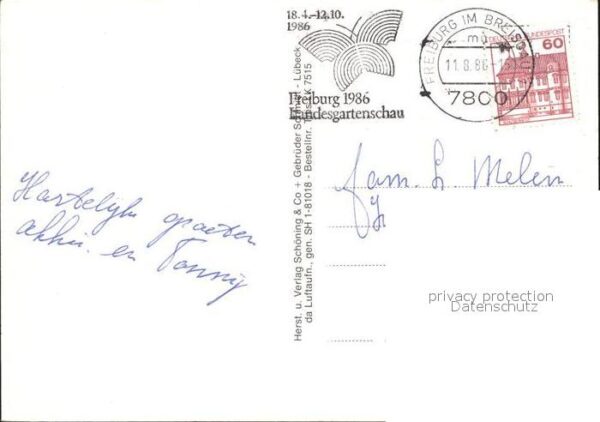 18.4.-12.10.
1986
Freiburg 1986
Landesgartenschau
FREIBURG IM BREISGAU
mu
11.8.86-15
7800
DEUTSCHE BUNDESPOST
60
Herst. u. Verlag Schöning & Co + Gebrüder Schmidt - Lübeck
da Luftaufn., gen. SH 1-81018 - Bestellnr. K 7515
Fam. L Melein
Hartelijke groeten
en Tonny
privacy protection
Datenschutz